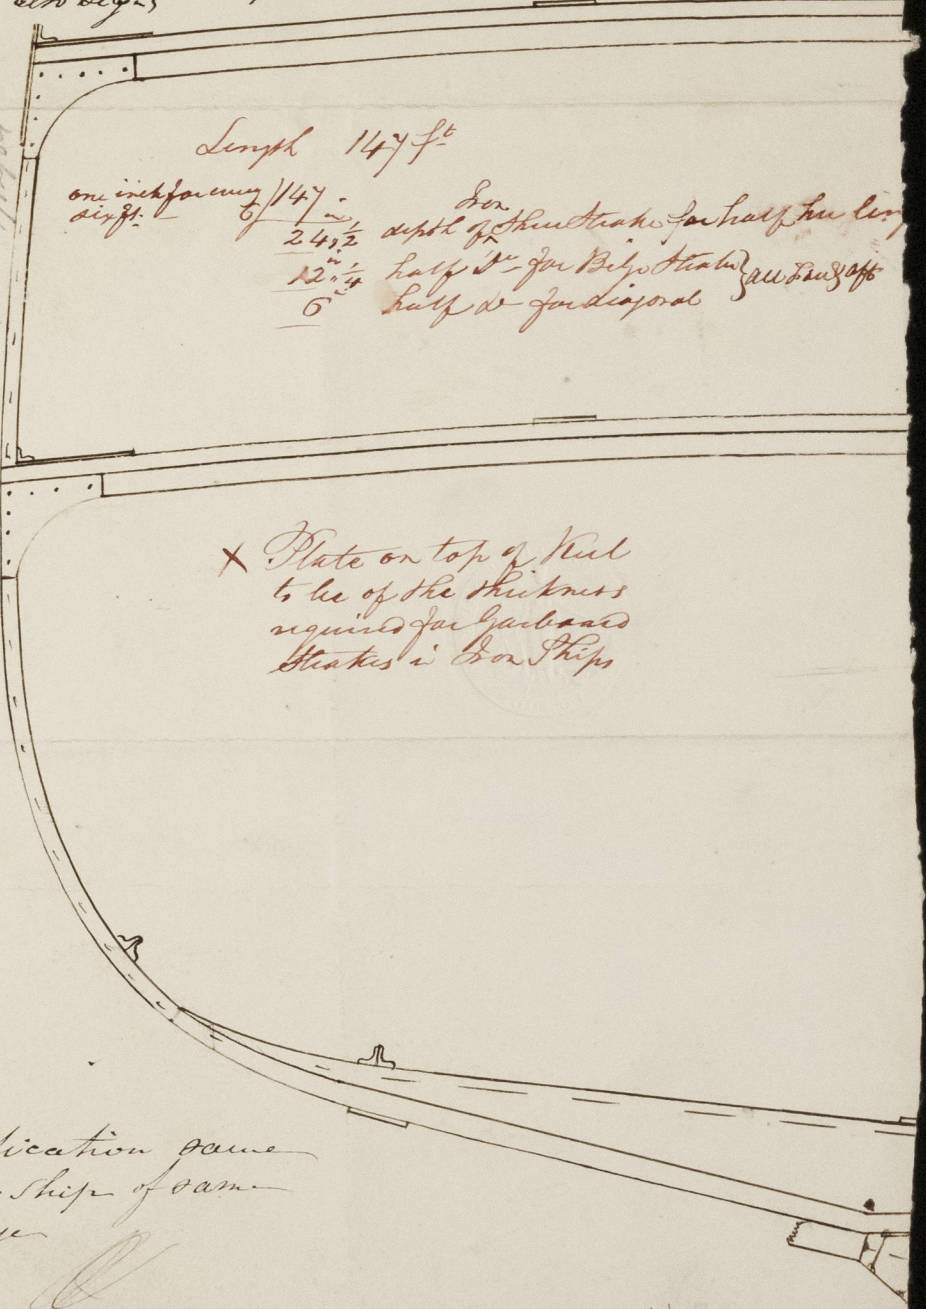 Length 147 ft
one inch for every
six ft. 6)147
24 1/2 depth of Iron Sheer Strake for half her
12 1/4 half Do for Bilge Strake } all fore & aft
6 half Do for diagonal
x Plate on top of Keel
to be of the thickness
required for Garboard
Strakes in Iron Ships
lication same
ship of same